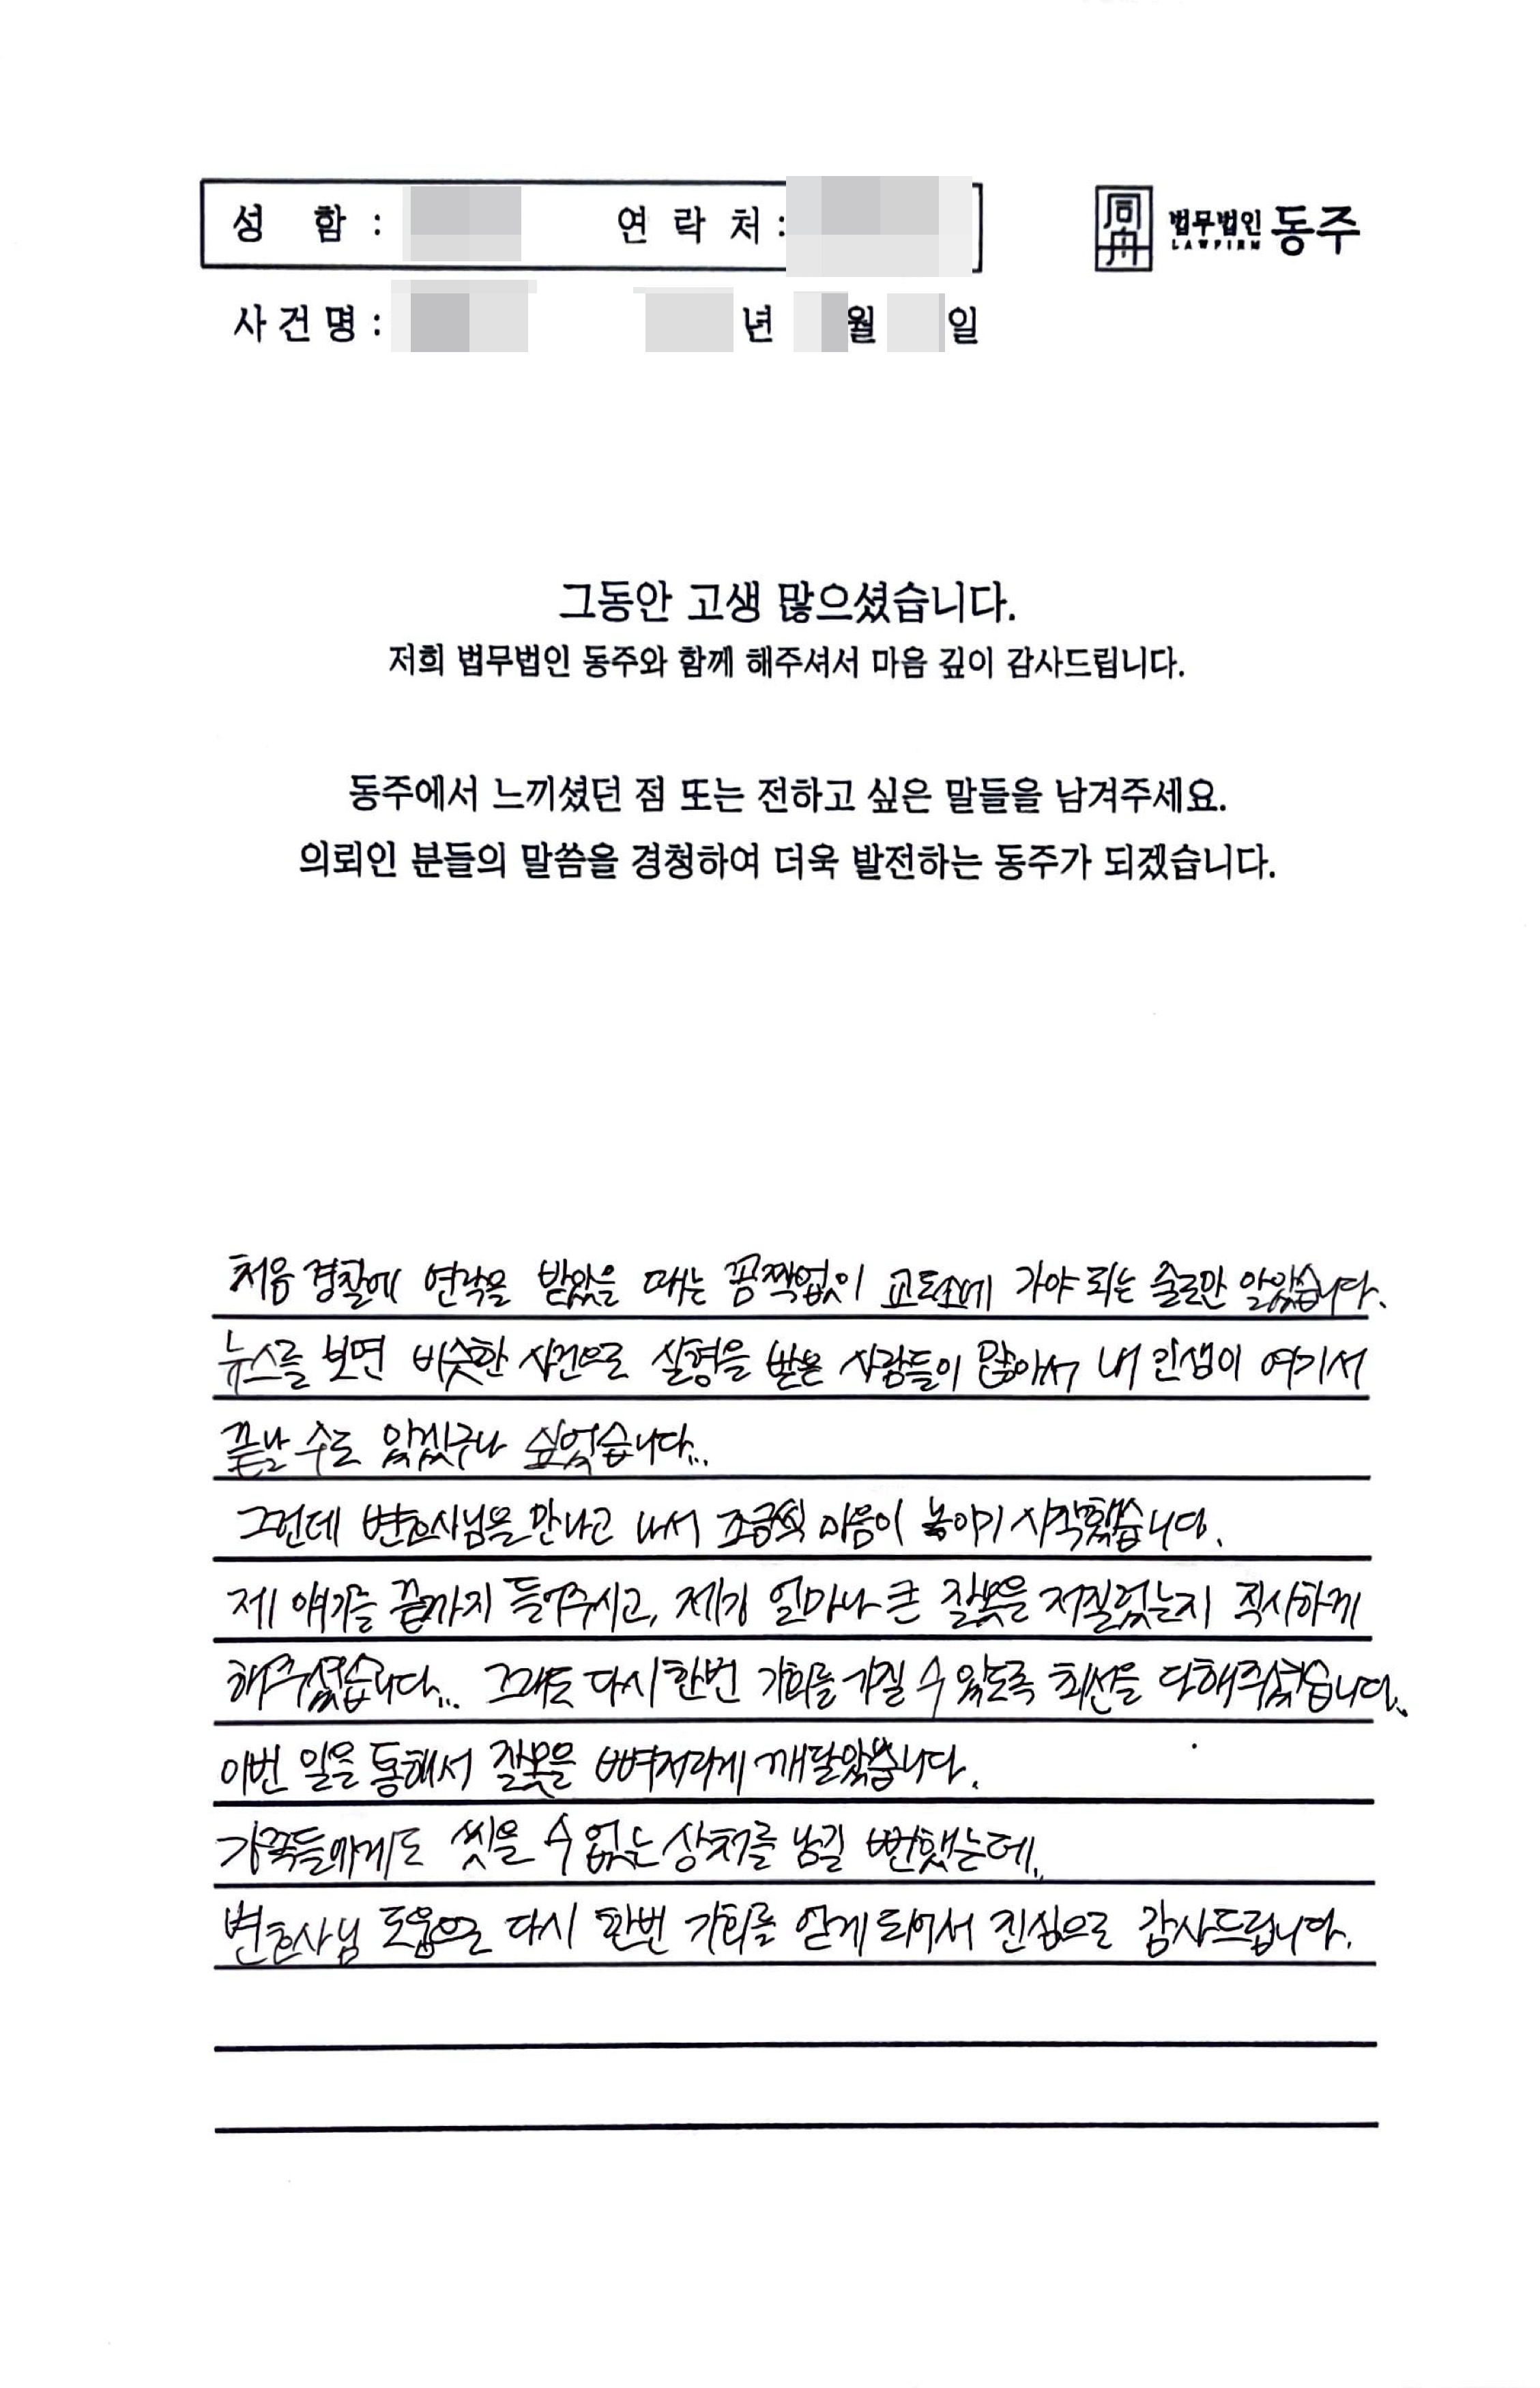 성 함 : 연 락 처 :
同舟 법무법인 동주
LAWFIRM
사 건 명 : 년 월 일
그동안 고생 많으셨습니다.
저희 법무법인 동주와 함께 해주셔서 마음 깊이 감사드립니다.
동주에서 느끼셨던 점 또는 전하고 싶은 말들을 남겨주세요.
의뢰인 분들의 말씀을 경청하여 더욱 발전하는 동주가 되겠습니다.
처음 경찰에 연락을 받았을 때는 꼼짝없이 교도소에 가야 되는 줄로만 알았습니다.
뉴스를 보면 비슷한 사건으로 실형을 받은 사람들이 많아서 내 인생이 여기서
끝날 수도 있겠구나 싶었습니다...
그런데 변호사님을 만나고 나서 조금씩 마음이 놓이기 시작했습니다.
제 얘기를 끝까지 들어주시고, 제가 얼마나 큰 잘못을 저질렀는지 직시하게
해주셨습니다... 그래도 다시 한번 기회를 가질 수 있도록 최선을 다해주셨습니다.
이번 일을 통해서 잘못을 뼈저리게 깨달았습니다.
가족들에게도 씻을 수 없는 상처를 남길 뻔했는데,
변호사님 도움으로 다시 한번 기회를 얻게 되어서 진심으로 감사드립니다.